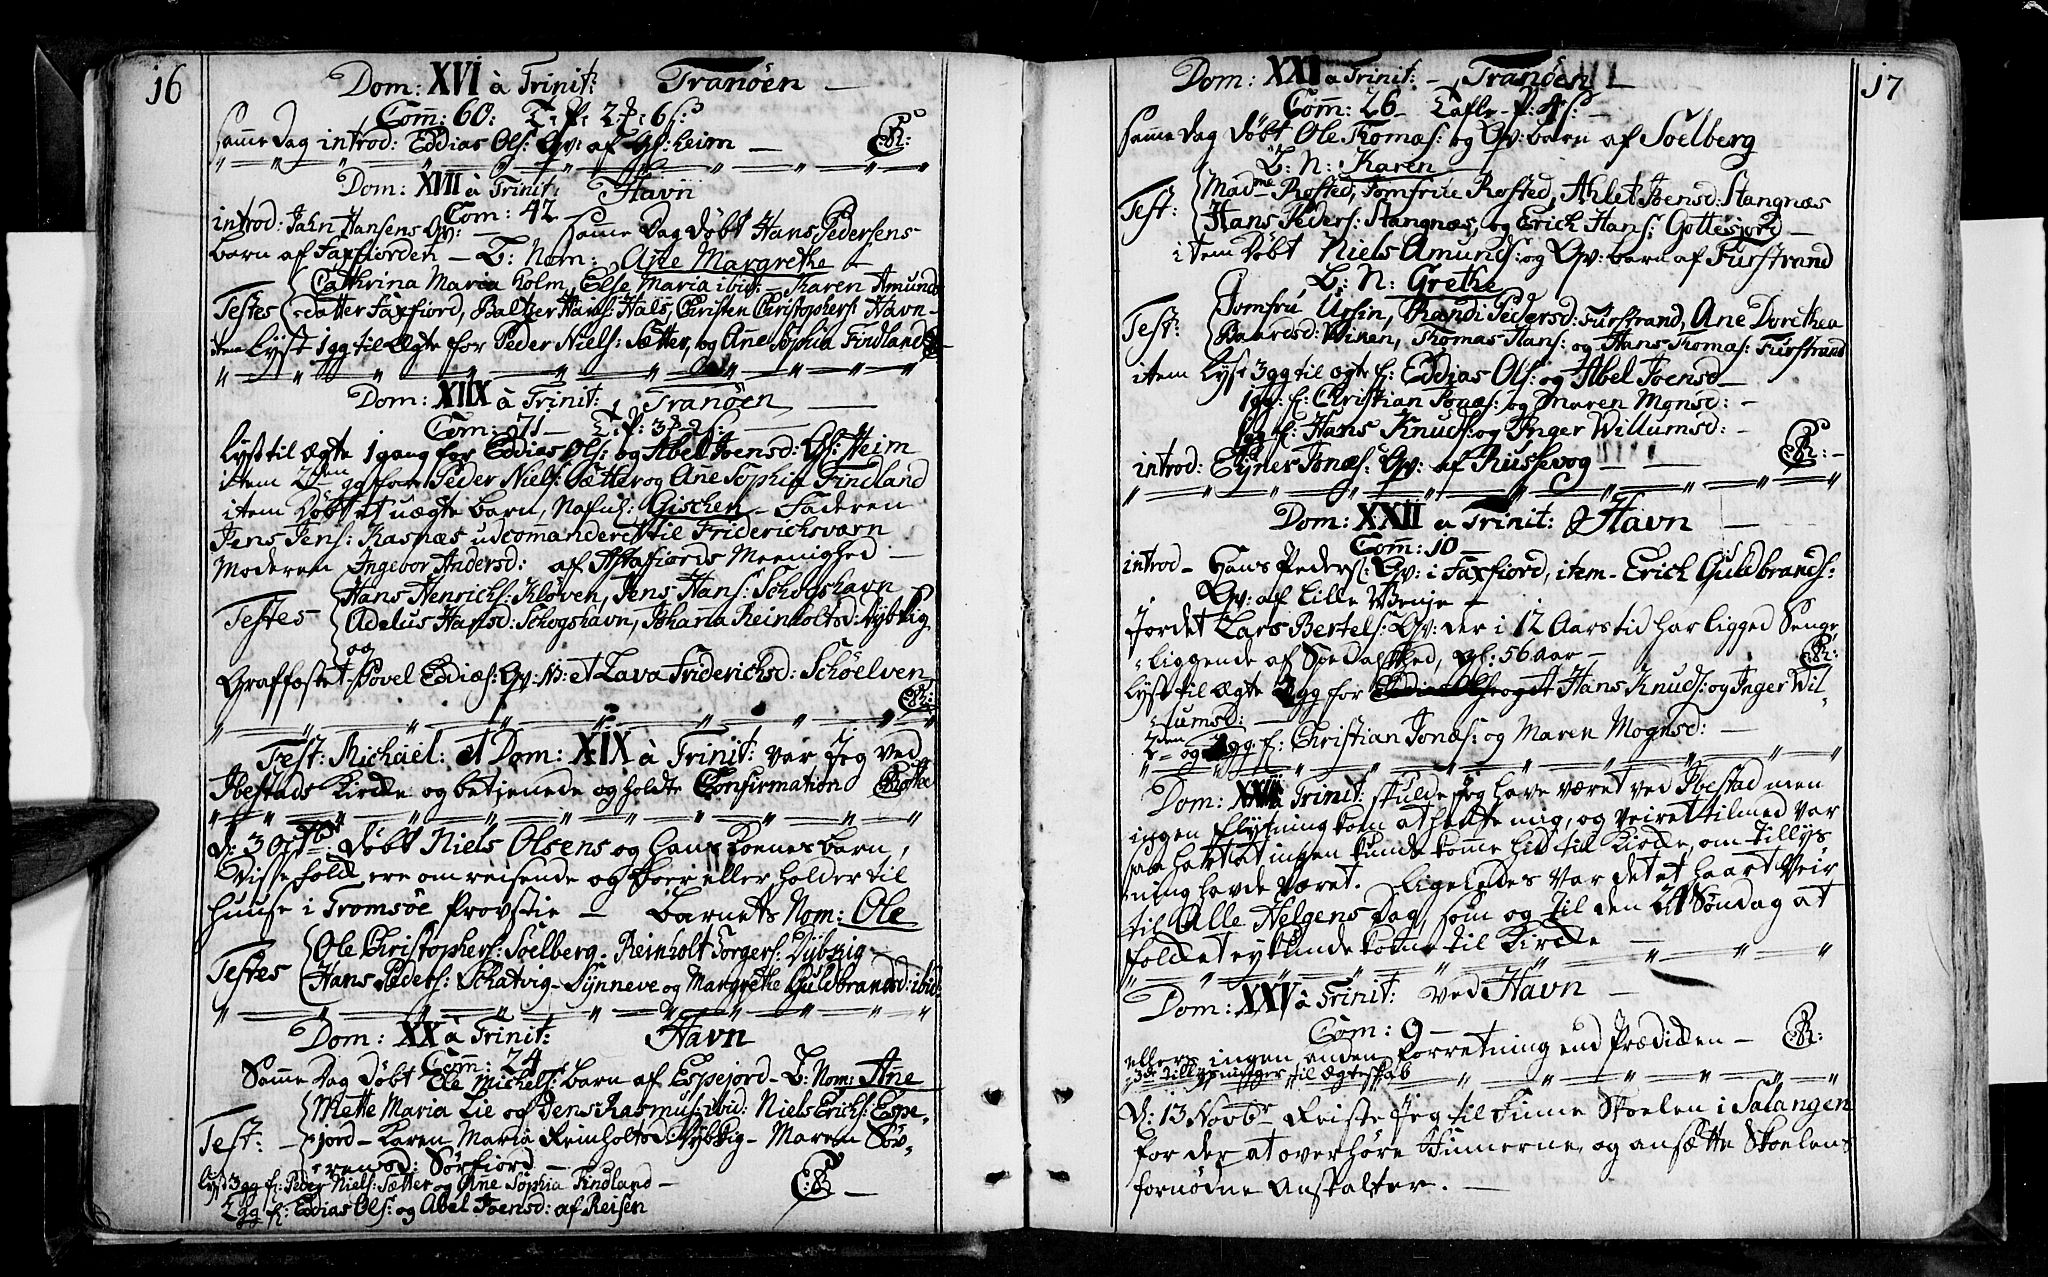 16
Dom: XVI à Trinit: Tranöen
Com: 60: T: P: 2 6
Samme Dag introd: Eddias Ols: Qv: af Gs: heim
Dom: XVII à Trinit: Havn
Com: 42
introd: Jahn Hansens Qv: — Samme Dag döbt Hans Pedersens
barn af Faxfiorden — B: Nom: Ane Margrethe
Cathrina Maria Holm, Else Maria ibid: — Karen Amunds
Testes datter Faxfiord, Baltzer Hans: Hals, Christen Christophers: Havn
item Lyst 1 gg til Ægte for Peder Niels: Sætter, og Ane Sophia Findland
Dom: XIIX à Trinit: Tranöen
Com: 71 — T: P: 3
Lyst til Ægte 1 gang for Eddias Ols: og Abel Joensd: Gs: Heim
item 2den gg for Peder Niels: Sætter og Ane Sophia Findland
item Döbt et uægte barn, Nafnl: Gischen — Faderen
Jens Jens: Kasnæs udcommanderet til Friderichsværn
Moderen Ingebor Andersd: af Astafiords Meenighed
Hans Henrichs: Klöven, Jens Hans: Schogshavn
Testes Adelus Hansd: Schogshavn, Johanna Reinholtsd: Dybvig
og
Graffæstet Povel Eddias: Qv: N: et Lava Friderichsd: Schöelven
Fest: Michael: et Dom: XIX à Trinit: var Jeg ved
Ibestads Kirke og betjenede og holdt Confirmation
d: 3 Octbr: döbt Niels Olsens og hans Konnes barn,
Disse folk ere omreisende og hörer eller holder til
huuse i Tromsöe Provstie — barnets Nom: Ole
Ole Christophers: Soelberg — Reinholt Torgers: Dybvig
Testes Hans Peders: Schatvig — Synneve og Margrethe Guldbrandsd: ibid:
Dom: XX à Trinit: Havn
Com: 24
Samme Dag döbt Ole Michels: barn af Espejord — B: Nom: Ane
Mette Maria Lie og Jens Rasmus: ibid: Niels Erichs: Espe-
Test: jord — Karen Maria Reinholtsd: Dybvig — Maren Söv-
rensd: Sörfiord
lyst 3 gg f: Peder Niels: Sætter og Ane Sophia Findland —
2 gg f: Eddias Ols: og Abel Joensd: af Reisen
17
Dom: XXI a Trinit: — Tranöen
Com: 26 — Tafle-P: 4
Samme Dag Döbt Ole Thomas: og Qv: barn af Soelberg
B: N: Karen
Madme Rosted, Jomfrue Rosted, Ahlet Joensd: Stangnæs
Test: Hans Peders: Stangnæs, og Erich Hans: Gottesjord —
item Döbt Niels Amunds: og Qv: barn af Furstrand
B: N: Grethe
Jomfru Ursin, Randi Pedersd: Furstrand, Ane Dorethea
Test: Baardsd: Viken, Thomas Hans: og Hans Thomas: Furstrand
item Lyst 3 gg til ægte f: Eddias Ols: og Abel Joensd —
1 gg: f: Christian Jonæs: og Maren Mognsd: —
1 gg f: Hans Knuds: og Inger Willumsd: —
introd: Ejner Jonæs: Qv: af Russevog —
Dom: XXII a Trinit: Havn
Com: 10
introd — Hans Peders: Qv: i Faxfiord, item — Erich Guldbrands:
Qv: af Lille Wenje —
Jordet Lars Bertels: Qv: der i 12 Aars tid har ligged Senge
liggende af Spedalsked, gl: 56 aar —
Lyst til Ægte 2 gg for Hans Knuds: og Inger Wil-
lumsd: —
2den og 3 gg f: Christian Jonæs: og Maren Mognsd: —
Dom: XXIII a Trinit: skulde Jeg have været ved Ibestad men
ingen flytning kom at hente mig, og veiret tilmed var
saa hart at ingen kunde komme hid til Kirke, om tillys
ning havde været. Ligeledes var det et haart Veir
til Alle Helgens Dag, som og til den 24 Söndag at
folket ey kunde komme til Kirke —
Dom: XXV à Trinit: ved Havn
Com: 9 —
ellers ingen anden forretning end Prædiken —
3de tillysninger til Ægteskab
D: 13 Novbr Reiste Jeg til Finne Skoelen i Salangen
for der at overhöre Finnerne, og ansætte Skoelens
fornödne Anstalter. —